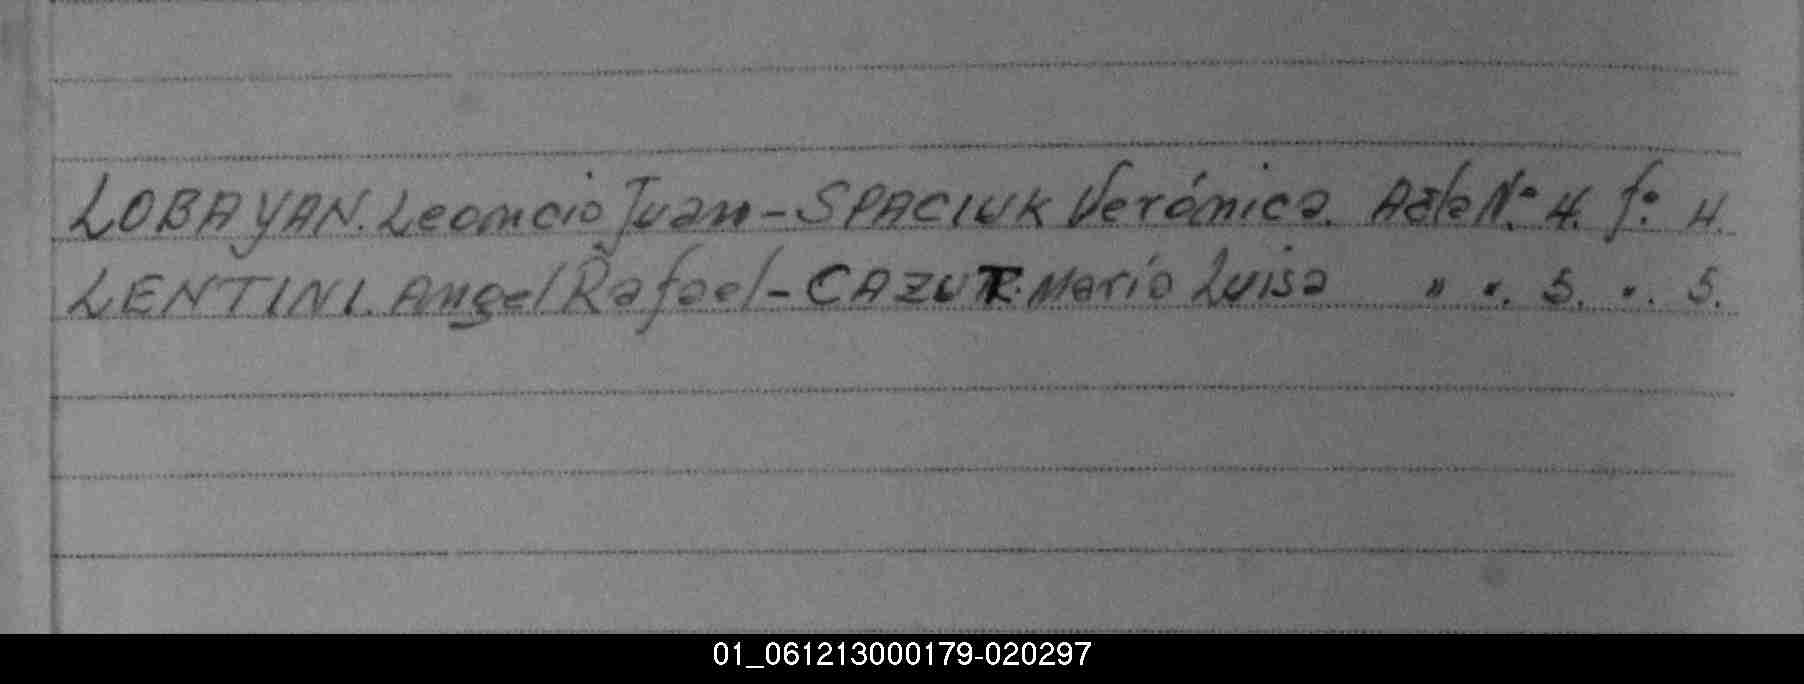 LOBAYAN. Leoncio Juan - SPACIUK Verónica. Acta N.° 4. f.° 4.
LENTINI. Angel Rafael - CAZUT. María Luisa " ". 5. ". 5.
01_061213000179-020297